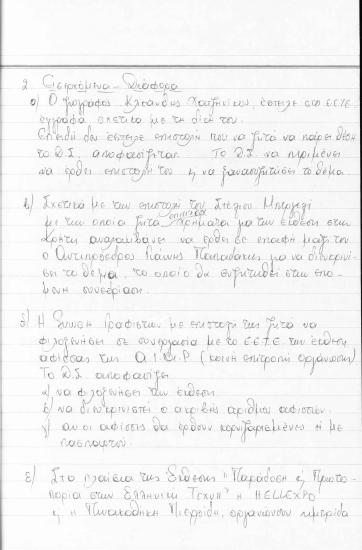 2. Εισερχόμενα - Διάφορα
α) Ο ζωγράφος Κλεάνθης Χατζηνίκου, έστειλε στο ΕΕΤΕ
έγγραφα σχετικά με τη δίκη του.
Επειδή δεν έστειλε επιστολή που να ζητά να πάρει θέση
το Δ.Σ. αποφασίζεται. Το Δ.Σ. να περιμένει
να έρθει επιστολή του ή να ξανασυζητήσει το θέμα.
β) Σχετικά με την επιστολή του Στέλιου
με την οποία ζητά επιπλέον χρήματα για την έκθεση στην
Κρήτη αναλαμβάνει να έρθει σε επαφή μαζί του
ο Αντιπρόεδρος Γιάννης Παπαδάκης για να διευκρινί-
σει το θέμα, το οποίο θα συζητηθεί στην επό-
μενη συνεδρίαση.
δ) Η Ένωση Γραφιστών με επιστολή της ζητά να
φιλοξενήσει σε συνεργασία με το ΕΕΤΕ την έκθεση
αφίσσας της (κοινή επιτροπή οργάνωσης)
Το Δ.Σ. αποφασίζει
α) να φιλοξενήσει την έκθεση.
β) να διευκρινιστεί ο ακριβής αριθμός αφισσών.
γ) αν οι αφίσσες θα έρθουν κορνιζαρισμένες ή με
πασπαρτού.
ε) Στα πλαίσια της Έκθεσης "Παράδοση και Πρωτο-
πορία στην Ελληνική Τέχνη" η HELLEXPO
και η Πινακοθήκη Πιερίδη, οργανώνουν ημερίδα